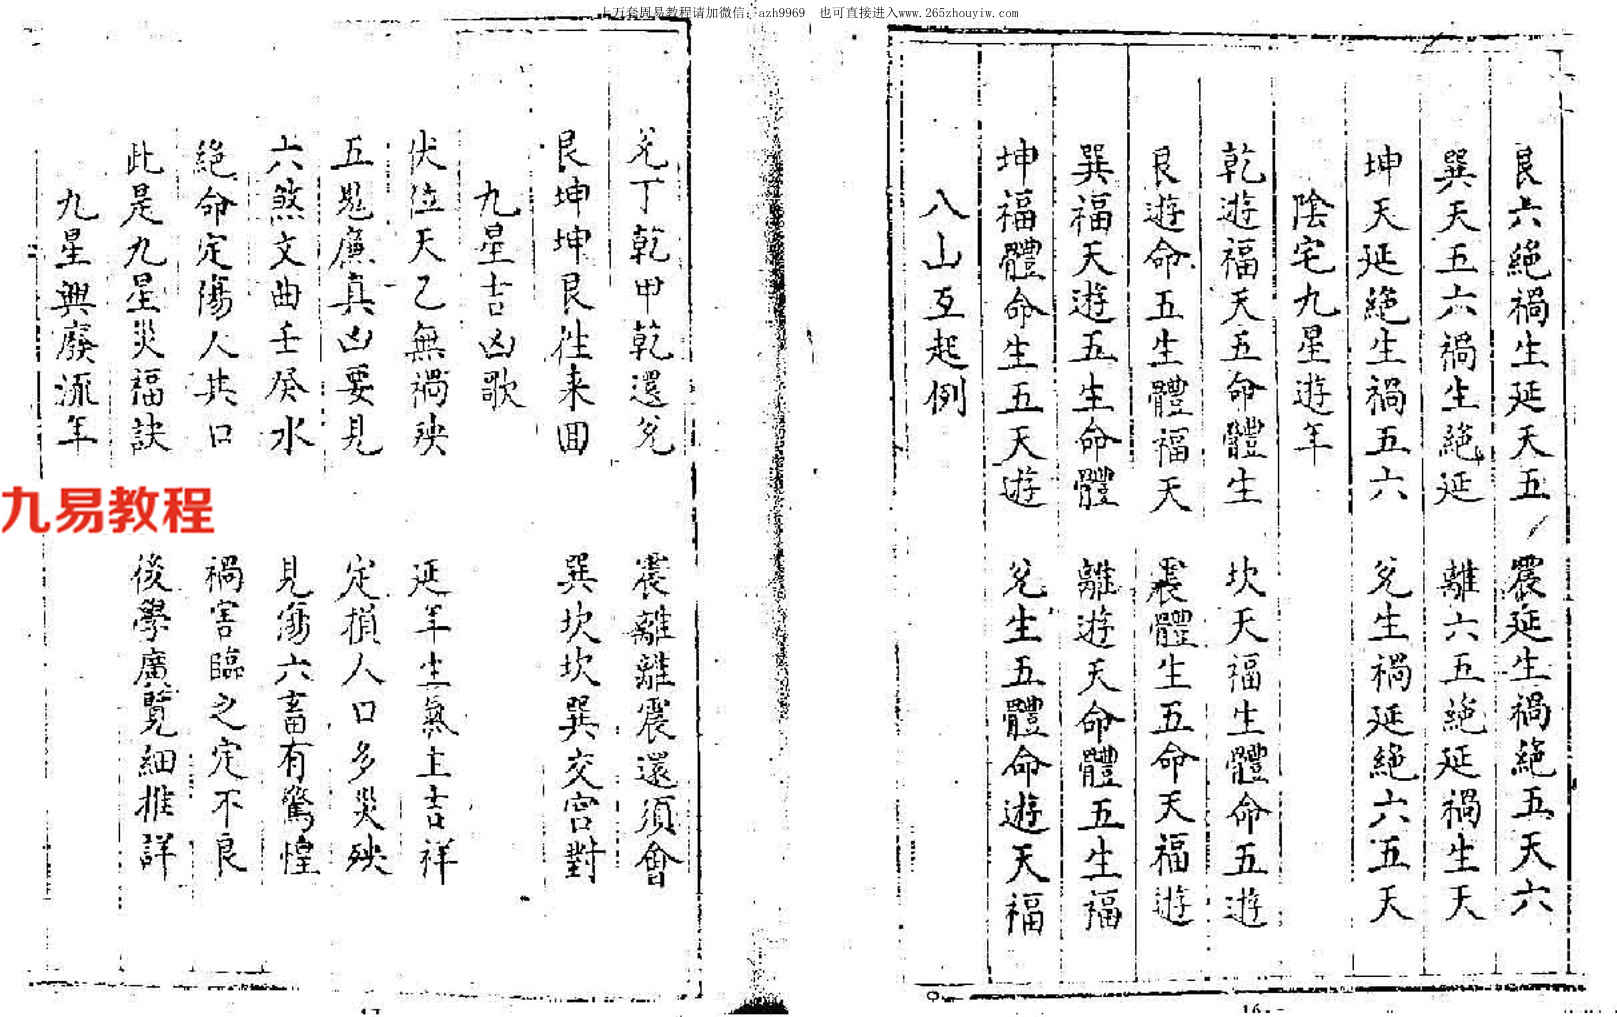 上万套周易教程请加微信：azh9969 也可直接进入www.265zhouyiw.com
艮六絕禍生延天五 震延生禍絕五天六
巽天五六禍生絕延 離六五絕延禍生天
坤天延絕生禍五六 兌生禍延絕六五天
陰宅九星遊年
乾遊福天五命體生 坎天福生體命五遊
艮遊命五生體福天 震體生五命天福遊
巽福天遊五生命體 離遊天命體五生福
坤福體命生五天遊 兌生五體命遊天福
八山互起例
16
兌丁乾甲乾還兌 震離離震還須會
艮坤坤艮徃来囬 巽坎坎巽交宫對
九星吉凶歌
伏位天乙無禍殃 延年生氣主吉祥
五鬼廉真凶要見 定損人口多災殃
六煞文曲壬癸水 見傷六畜有驚惶
絕命定傷人共口 禍害臨之定不良
此是九星災福訣 後學廣覽細推詳
九星興廢流年
17
九易教程